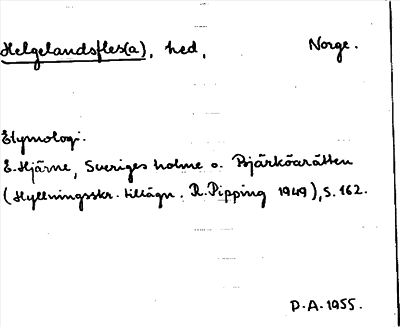 Helgelandsfles(a), hed, Norge.
Etymologi:
E. Hjärne, Sveriges holme o. Bjärköarätten
(Hyllningsskr. tillägn. R. Pipping 1949), s. 162.
P.A. 1955.